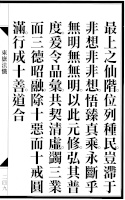 最上之仙階位列種民豈滯于
非想非非想悟臻真乘永斷乎
無明無無明以此元修弘其普
度爰令品彙共契清虛躅三業
而三德昭融除十惡而十戒圓
滿行成十善道合